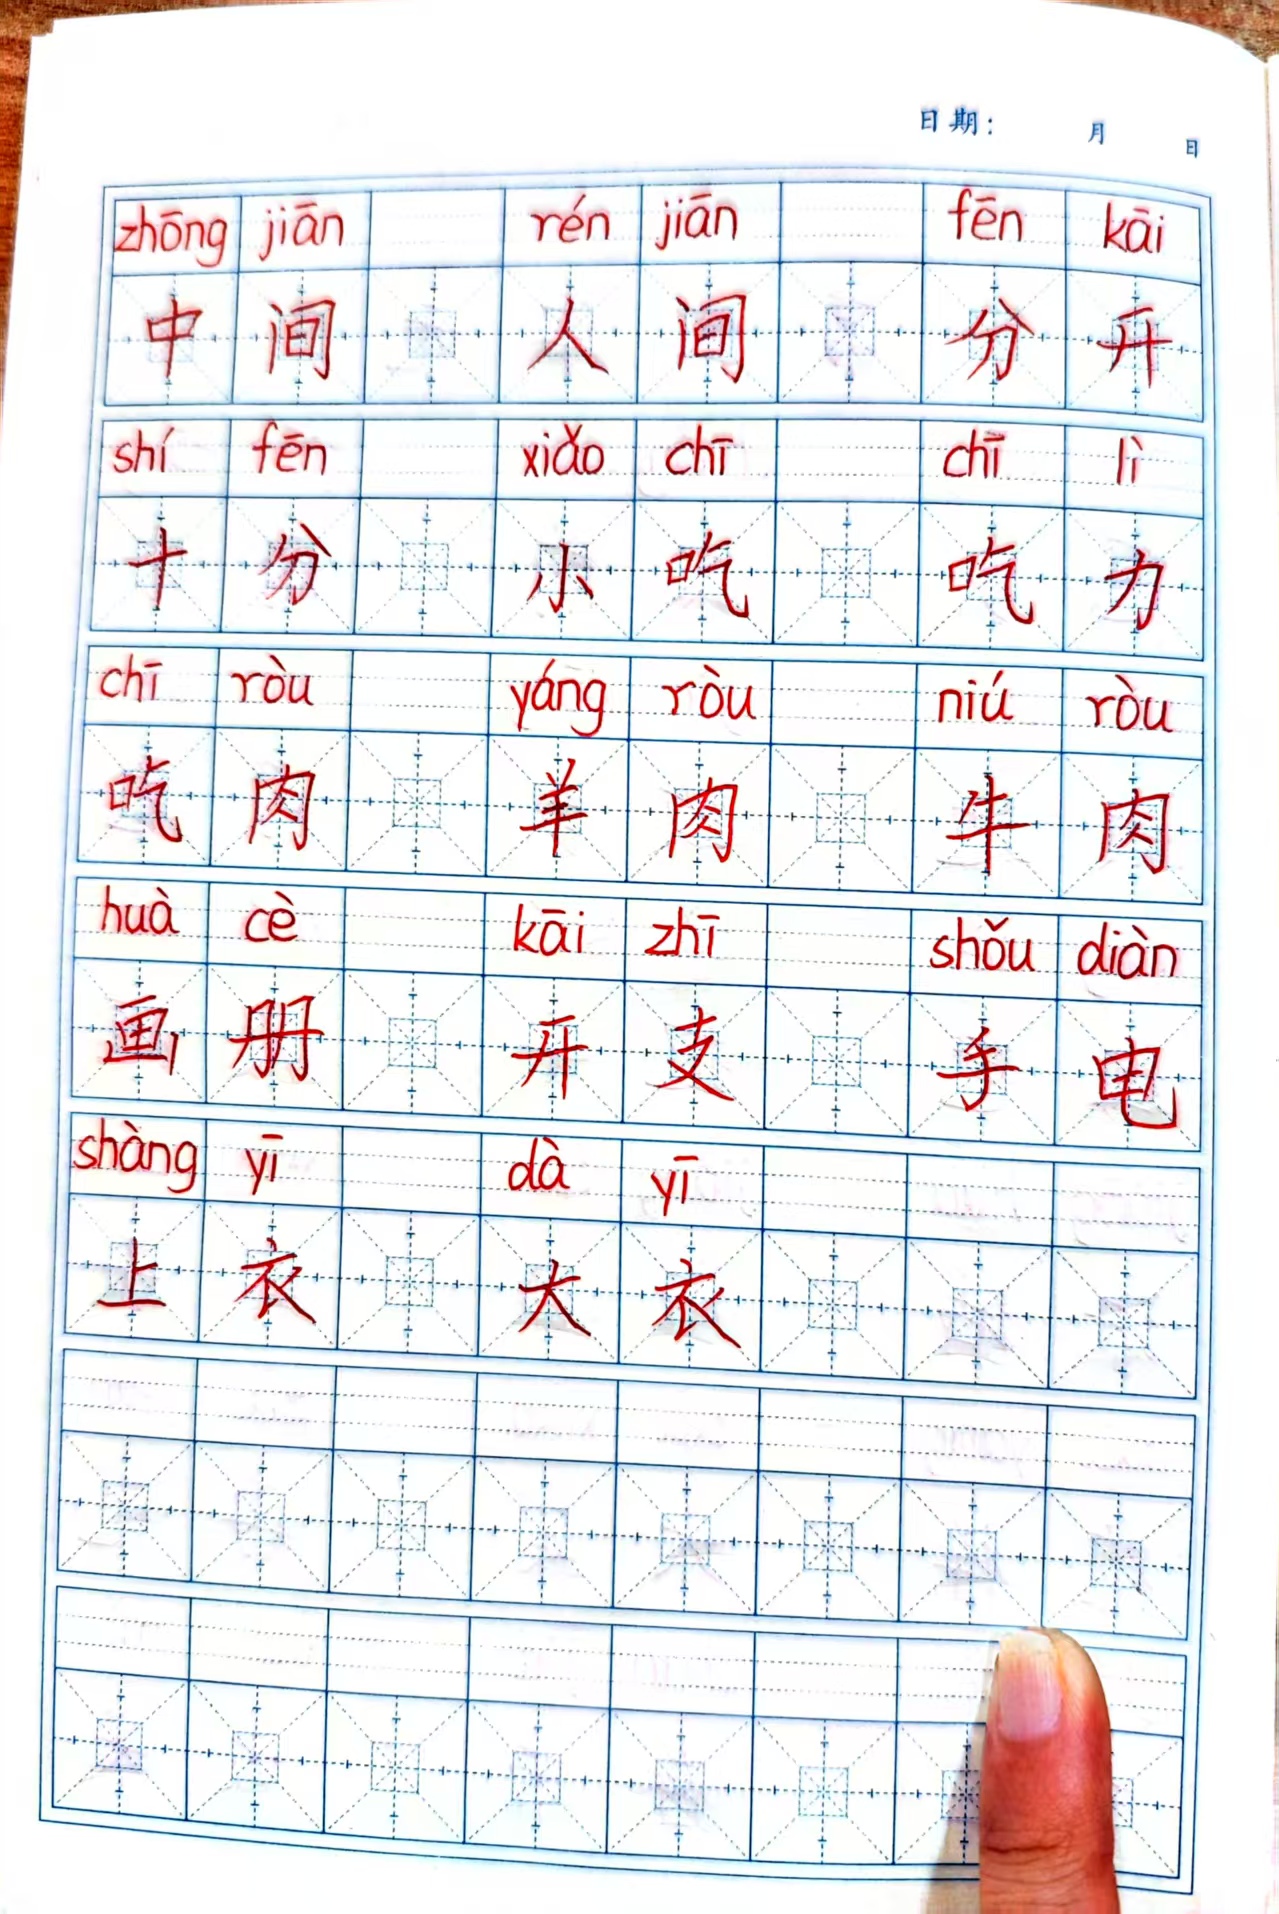 日期： 月 日
zhōng jiān rén jiān fēn kāi
中间 人间 分开
shí fēn xiǎo chī chī lì
十分 小吃 吃力
chī ròu yáng ròu niú ròu
吃肉 羊肉 牛肉
huà cè kāi zhī shǒu diàn
画册 开支 手电
shàng yī dà yī
上衣 大衣